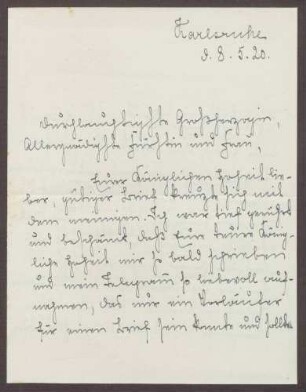 Karlsruhe
d. 8. 5. 20.
Durchlauchtigste Großherzogin,
Allergnädigste Fürstin und Frau,
Eurer Königlichen Hoheit lie-
ber, gütiger Brief kreuzte sich mit
dem meinigen. Ich war tief gerührt
und beschämt, daß Eure König-
liche Hoheit mir so bald schrieben
und mein Telegramm so liebevoll auf-
nahmen, das nur ein Vorläufer
für einen Brief sein konnte und sollte